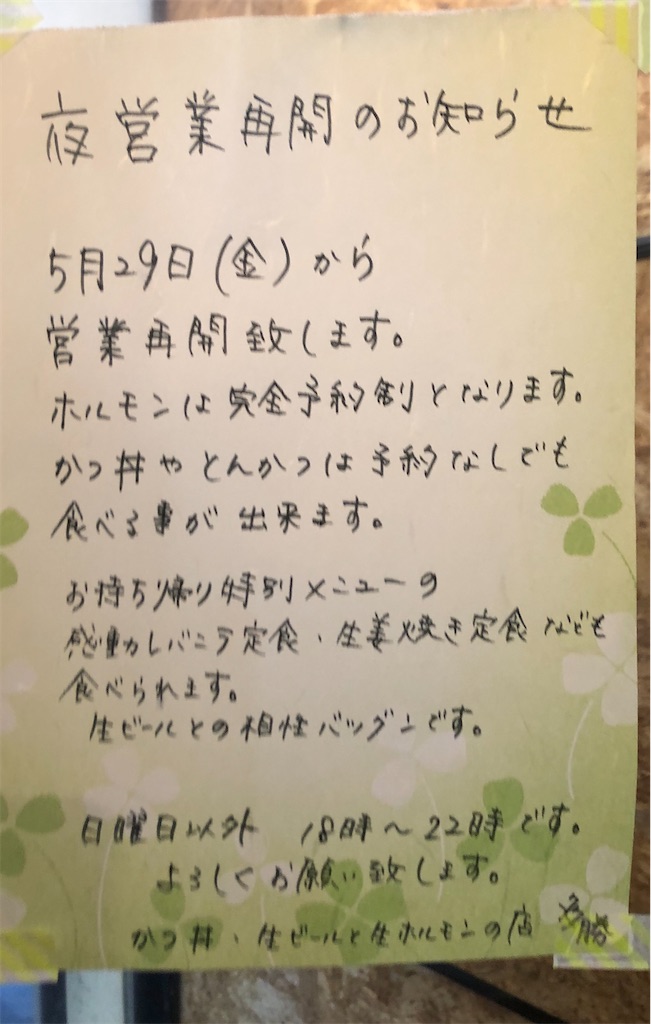 夜営業再開のお知らせ
5月29日(金)から
営業再開致します。
ホルモンは完全予約制となります。
かつ丼やとんかつは予約なしでも
食べる事が出来ます。
お持ち帰り特別メニューの
感動レバニラ定食・生姜焼き定食なども
食べられます。
生ビールとの相性バツグンです。
日曜日以外 18時~22時です。
よろしくお願い致します。
かつ丼・生ビールと生ホルモンの店